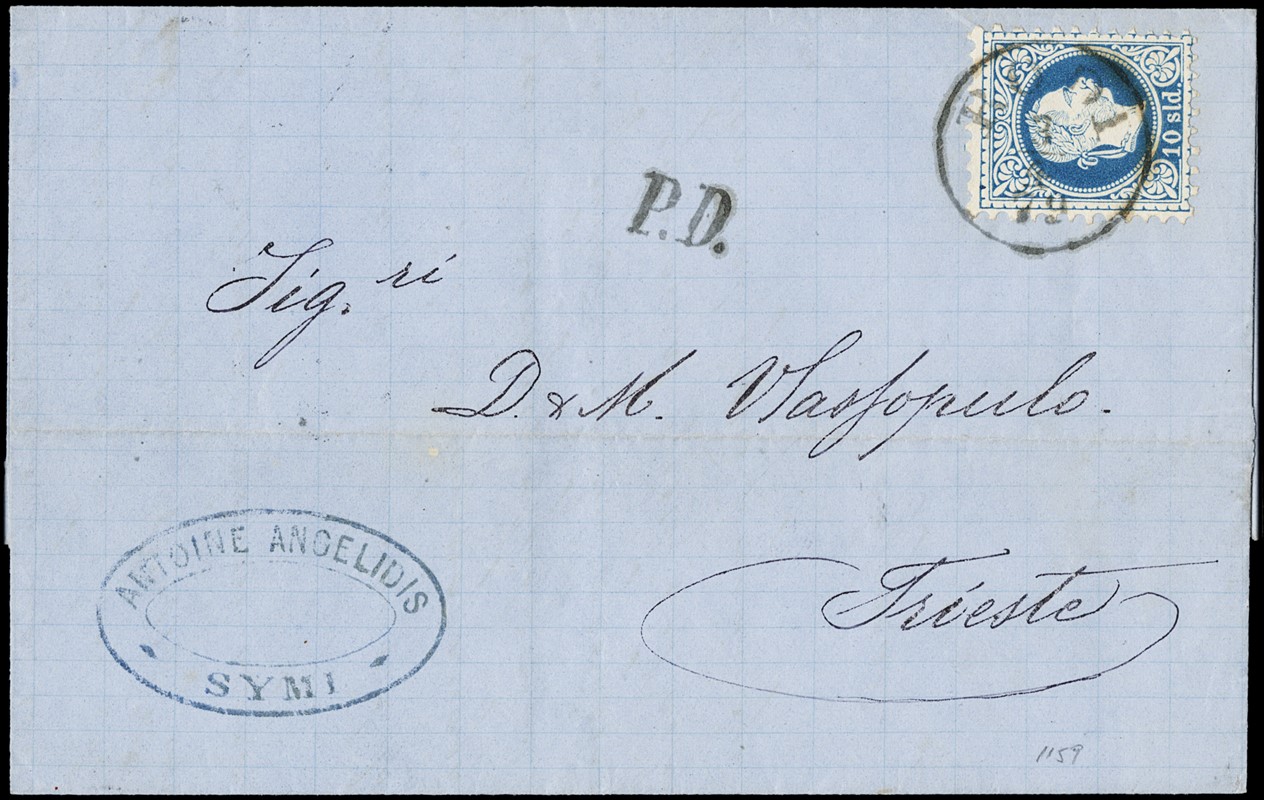 10 sld.
79
P.D.
Sig.ri
D. & M. Vlassopulo.
ANTOINE ANGELIDIS
SYMI
Trieste
1159